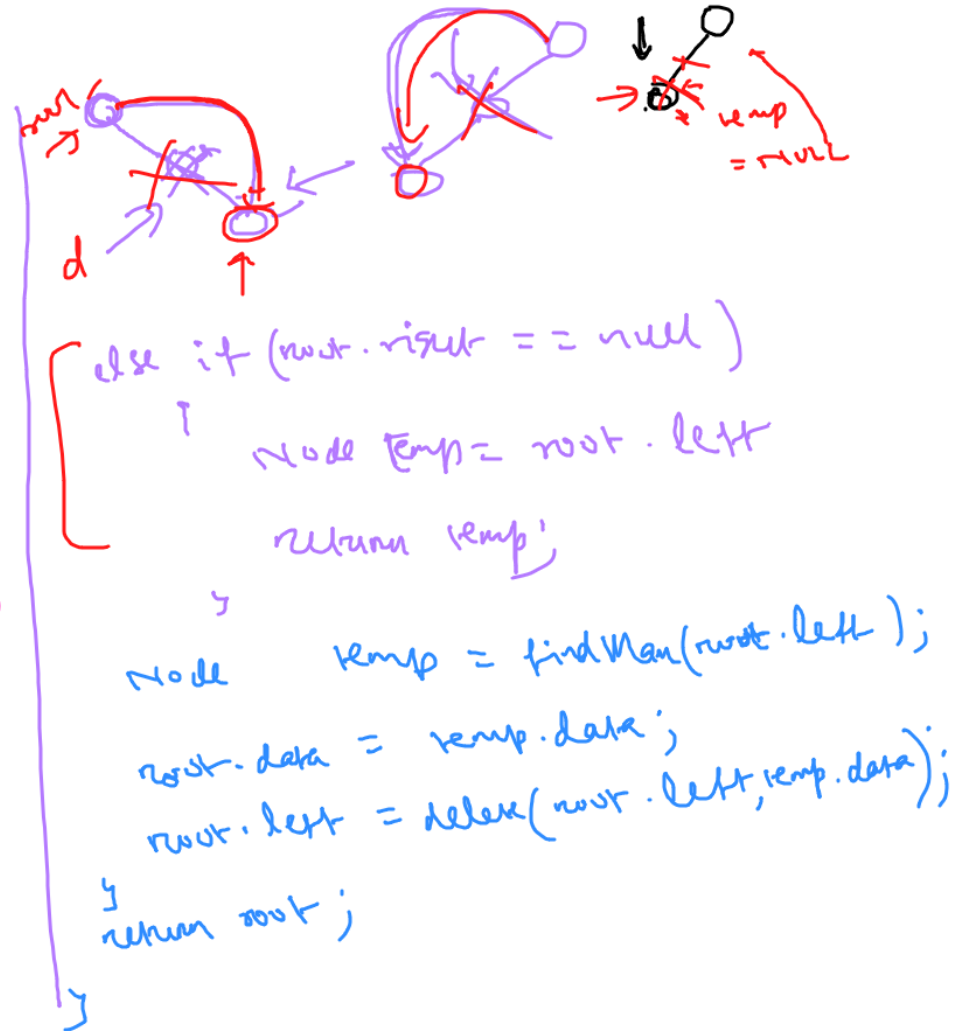 d
temp
= NULL
else if (root.right == null)
{
Node temp = root.left
return temp;
}
Node temp = findMax(root.left);
root.data = temp.data;
root.left = delete(root.left, temp.data);
}
return root;
}